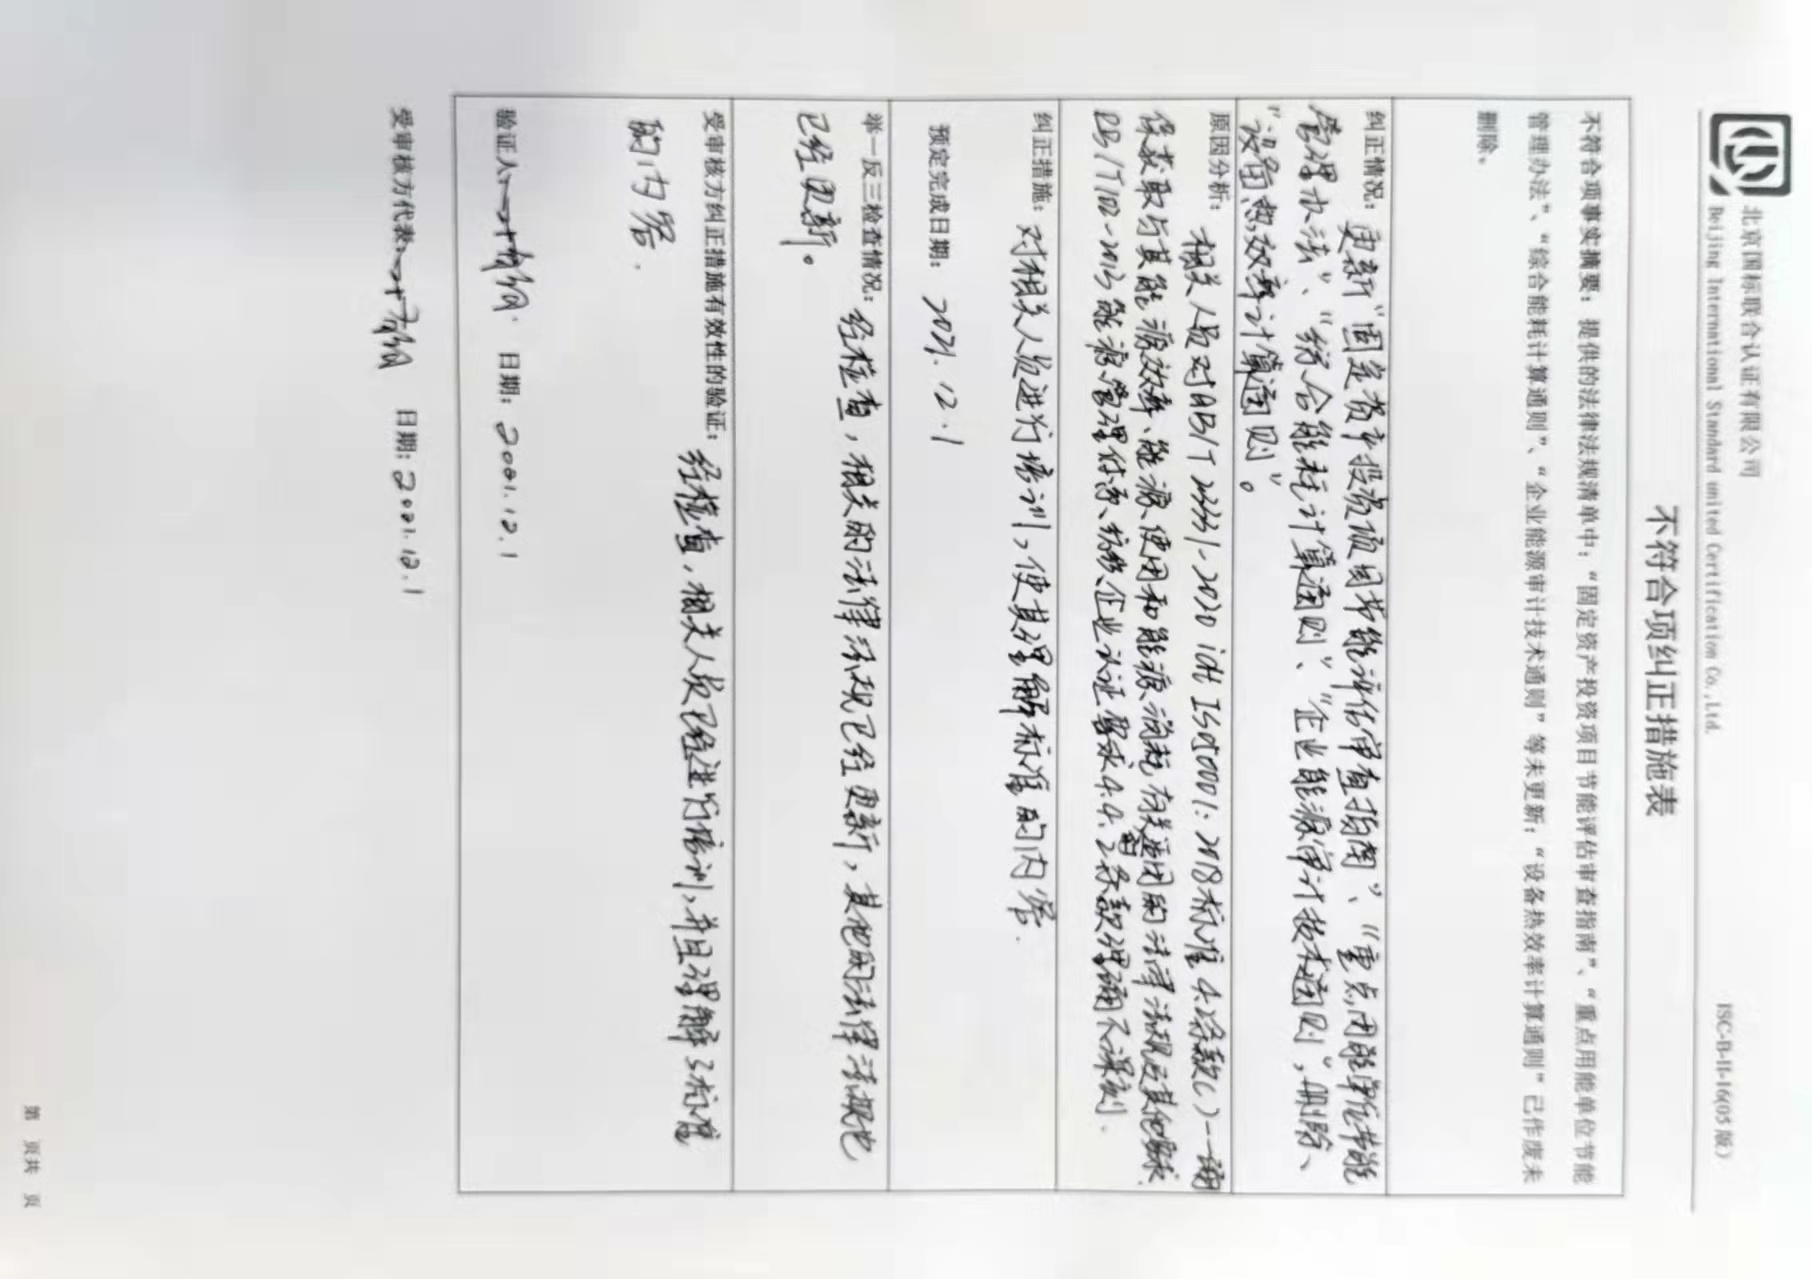 北京国标联合认证有限公司
Beijing International Standard united Certification Co.,Ltd.
ISC-B-II-16(05版)
不符合项纠正措施表
不符合项事实摘要：提供的法律法规清单中：“固定资产投资项目节能评估审查指南”、“重点用能单位节能
管理办法”、“综合能耗计算通则”、“企业能源审计技术通则”等未更新；“设备热效率计算通则”已作废未
删除。
纠正情况：更新“固定资产投资项目节能评估审查指南”、“重点用能单位节能
管理办法”、“综合能耗计算通则”、“企业能源审计技术通则”，删除、
“设备热效率计算通则”。
原因分析：相关人员对
标准4.2条款c)一确
保获取与其能源效率、能源使用和能源消耗有关适用的法律法规及其他要求
能源管理体系 企业认证要求4.4.2条款理确不深刻.
纠正措施：对相关人员进行培训，使其理解标准的内容.
预定完成日期：2021.12.1
举一反三检查情况：经检查，相关的法律法规已经更新，其他的法律法规也
已经更新。
受审核方纠正措施有效性的验证：经检查，相关人员已经进行培训，并且理解了标准
的内容.
验证人 日期：2021.12.1
受审核方代表： 日期：2021.12.1
第 页共 页